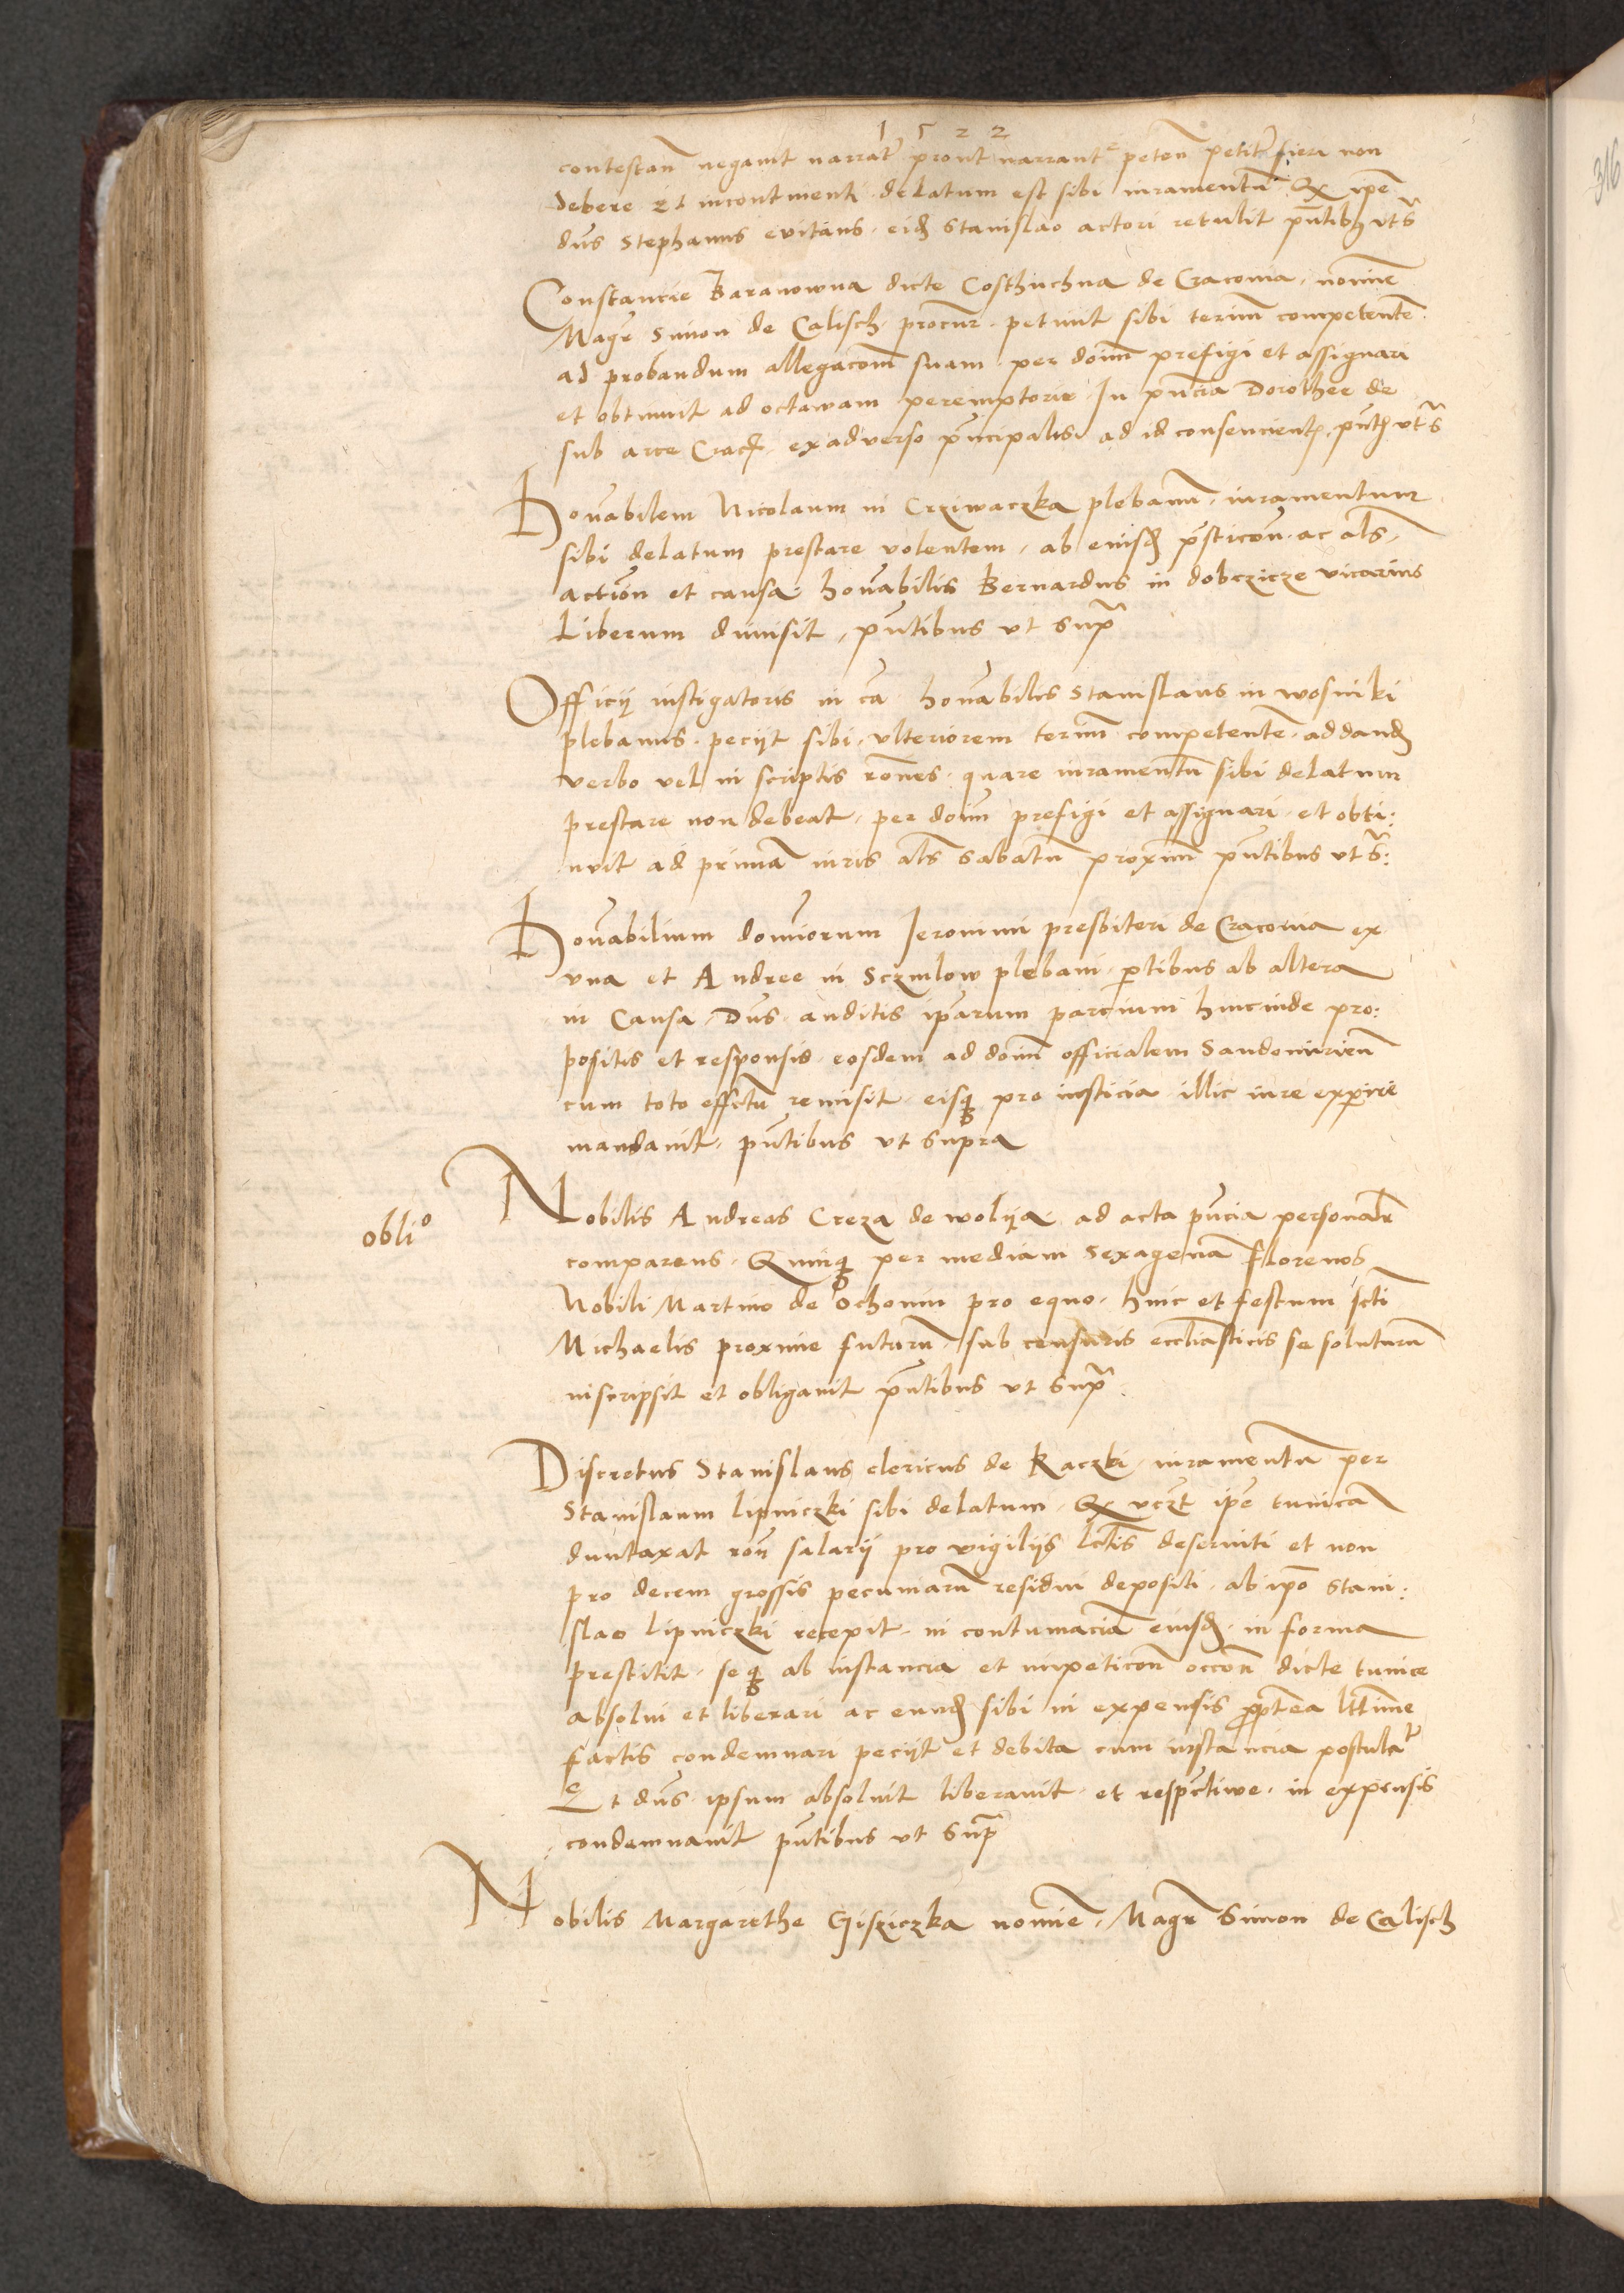 1522
contestan̄ negavit narrata prout narrantᵉ peten̄ petita fieri non
debere Et incontinenti delatum est sibi iuramentū Qd̄ ipē
dn̄s Stephanus evitans eid̄ Stanislao actori retulit pn̄tibꝫ vt sᵃ
Constancie Baranowna dicte Costhuchna de Cracovia noīe
Magr̄ Simon de Calisch procur̄ petivit sibi term̄ competentē
ad probandum allegacōm suam per doīm prefigi et assignari
et obtinuit ad octavam peremptorie In pn̄cia Dorothee de
sub arce Crac̄ ex adverso prīncipalis ad id consencient̄ pn̄tꝫ vt sᵃ
Honorabilem Nicolaum in Crziwaczka plebanū iuramentum
sibi delatum prestare volentem ab eiusd̄ ac als̄
action̄ et causa honorabilis Bernardus in dobczicze vicarius
Liberum dimisit pn̄tibus vt supᵃ
Officij instigatoris in cā honorabilis Stanislaus in wosniki
plebanus peciit sibi ulteriorem term̄ competentē ad dand̄
verbo vel in scriptis rōnes quare iuramentū sibi delatum
prestare non debeat per doīm prefigi et assignari et obti:
nuit ad primā iuris als̄ sabatū proxim̄ pn̄tibus vt sᵃ:
Honorabilium dominorum Ieronimi presbiteri de Cracovia ex
vna et Andree in Sczmlow plebani p̄tibus ab altera
in Causa Dn̄s auditis ip̄arum parcium hincinde pro:
positis et responsis eosdem ad doīm officialem Sandomirien̄
cum toto effctū remisit eisqꝫ pro iusticia illic iure experire
mandavit pn̄tibus vt supra
oblⁱᵒ
Nobilis Andreas Creza de wolija ad acta pn̄cia personalr̄
comparens Quinqꝫ per mediam Sexagenā florenos
Nobili Martino de Ochonin pro equo hinc et festum sc̄ti
Michaelis proxime futurū sub censuris eccliāsticis se soluturū
inscripsit et obligavit pn̄tibus vt supᵃ
Discretus Stanislaus clericus de Raczki iuramentū per
Stanislaum Lipniczki sibi delatum Qd̄ ipē tunicā
duntaxat rōn̄ salarij pro vigilijs deserviti et non
pro decem grossis pecuniarū residui depositi ab ipō Stani:
slao Lipniczki recepit in contumaciā eiusd̄ in forma
prestitit seqꝫ ab instancia et impeticōn̄ occōn̄ dicte tunice
absolui et liberari ac eund̄ sibi in expensis ppt̄ea lttīme
factis condemnari peciit et debita cum instancia postulaᵗ
Et dn̄s ipsum absoluit liberavit et respective in expensis
condemnavit pn̄tibus vt supᵃ
Nobilis Margarethe Gisziczka noīe Magr̄ Simon de Calisch
316